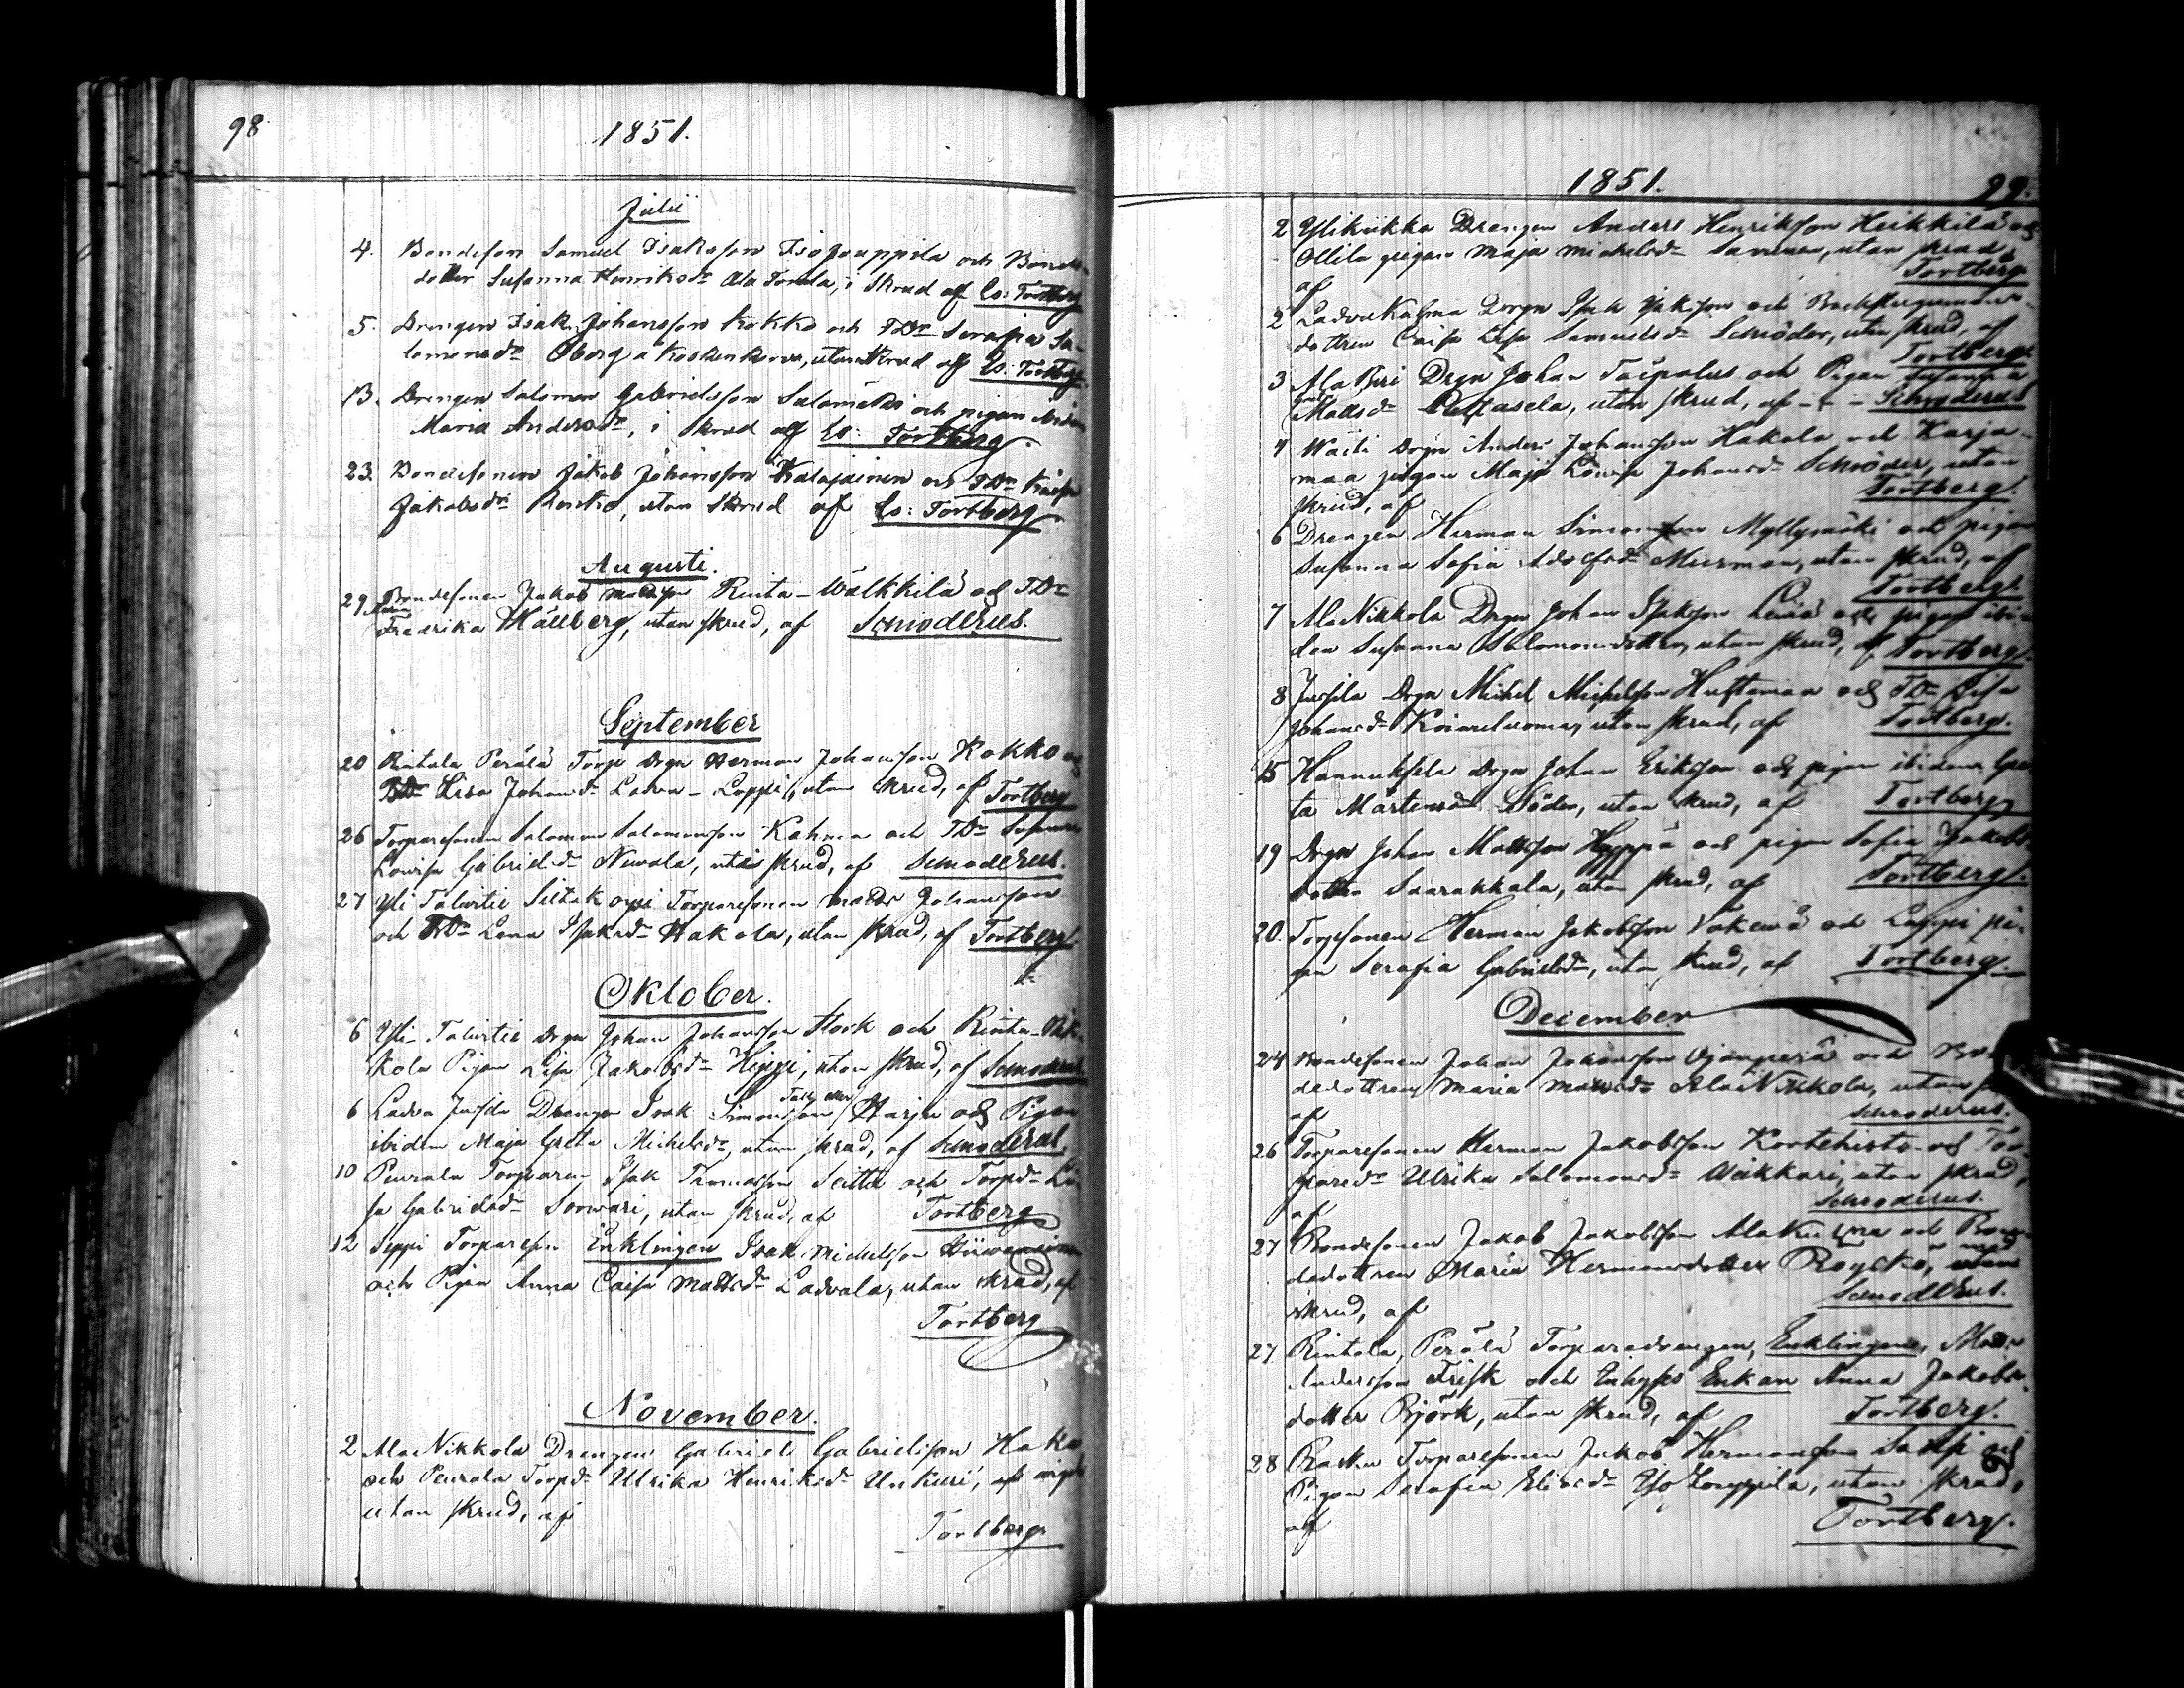 98
1851.
Julii
4. Bondeson Samuel Isaksson Isojouppila och Bonde-
dotter Susanna Henriksdr Ala Tonda, i skrud af Es: Tortberg
5. Drengen Isak Johansson Kokko och TDr Serafia Sa-
lomonsdr Öberg a Koskenkorva, utan skrud af Es: Tortberg
13. Drengen Salomon Gabrielsson Salomäki och pigan
Maria Andersdr, i skrud af Es: Tortberg
23. Bondesonen Jakob Johansson Kalajainen och TDr Kaisa
Jakobsdr Rinko, utan skrud af Es: Tortberg
Augusti.
29. Bondesonen Jakob Mattsson Rinta-Wälkkilä och TDr
Fredrika Hällberg, utan skrud, af Schroderus.
September
20 Rintala Perälä Torp Drgn Herman Johansson Kokko och
TDr Lisa Johansdr Ladva-Loppi, utan skrud, af Tortberg
26 Torparesonen Salomon Salomonsson Kahma och TDr Susanna
Lovisa Gabrielsdr Newala, utan skrud, af Schroderus.
27 Yli Talvitie Siltakoppi Torparesonen Matts Johansson
och TDr Lena Isaksdr Hakola, utan skrud, af Tortberg.
Oktober.
6 Yli-Talvitie Drgn Johan Johansson Stork och Rinta-Nik-
kola Pigan Lisa Jakobsdr Hippi, utan skrud, af Schroderus
6 Ladva Jussila Drengen Isak Simonsson Harju och Pigan
ibidem Maja Greta Michelsdr, utan skrud, af Schroderus.
10 Peurala Torparen Isak Thomasson Seitto och Torpdr Lo-
sa Gabrielsdr Sorvari, utan skrud, af Tortberg
12 Seppi Torpareson Enklingen Isak Michelsson
och Pigan Anna Caisa Mattsdr Ladvala, utan skrud, af
Tortberg
November.
2 Ala Nikkola Drengen Gabriel Gabrielsson Hako
och Peurala Torpdr Ulrika Henriksdr Unkuri,
utan skrud, af
Tortberg
1851. 99.
2 Ylikiikka Drengen Anders Henriksson Heikkilä och
Ollila pigan Maja Michelsdr Sameman, utan skrud,
af Tortberg
2 Ladva Kahma Drgn Isak Isaksson och
dottren Caisa Lisa Samuelsdr Schröder, utan skrud, af
Tortberg.
3 Ala Biri Drgn Johan Taipalus och Pigan Susanna
Mattsdr Pettasela, utan skrud, af - - - Schroderus
4 Waiti Drgn Anders Johansson Hakala och Karja-
maa pigan Maja Lovisa Johansdr Schröder, utan
skrud, af Tortberg.
6 Drengen Herman Simonsson Myllymäki och pigan
Susanna Sofia Adolfsdr Muurman, utan skrud, af
Tortberg.
7 Ala Nikkola Drgn Johan Isaksson Leinä och pigan ibi-
dem Susanna Salomonsdotter, utan skrud, af Tortberg.
8 Jussila Drgn Michel Michelsson Huhtamaa och TDr Lisa
Johansdr Koivuluoma, utan skrud, af Tortberg.
15 Hannuksela Drgn Johan Eriksson och pigan ibidem Gre-
ta Mårtensdr Söder, utan skrud, af Tortberg
19 Drgn Johan Mattsson Hyppä och pigan Sofia Jakobs-
dotter Saarakkala, utan skrud, af Tortberg.
20. Torpsonen Herman Jakobsson Wäkevä och Loppi pi-
gan Serafia Gabrielsdr, utan skrud, af Tortberg.
December
24 Bondesonen Johan Johansson Ojanperä och Bon-
dedottren Maria Mattsdr Ala Nikkola, utan
af Schroderus.
26 Torparesonen Herman Jakobsson Kortehisto och Tor-
paredr Ulrika Salomonsdr Wäkkäri, utan skrud,
af Schroderus.
27 Bondesonen Jakob Jakobsson Ala Kuipa och Bon-
dedottren Maria Hermansdotter Röyskö, med
skrud, af Schroderus.
27 Rintala, Perälä Torparedrengen, Enklingen, Matts
Andersson Frisk och Inhyses Enkan Anna Jakobs-
dotter Björk, utan skrud, af Tortberg.
28 Rasku Torparesonen Jakob Hermansson Saksi och
Pigan Serafia Eliasdr Yso Jouppila, utan skrud,
af Tortberg.